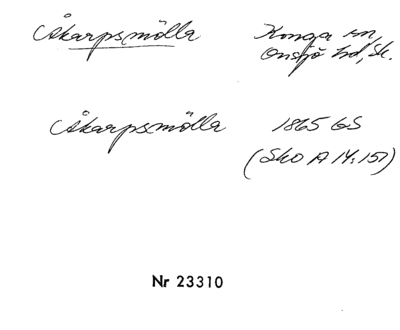 Åkarpsmölla Konga sn,
Onsjö hd, Sk.
Åkarpsmölla 1865 GS
(Sko A 14:151)
Nr 23310